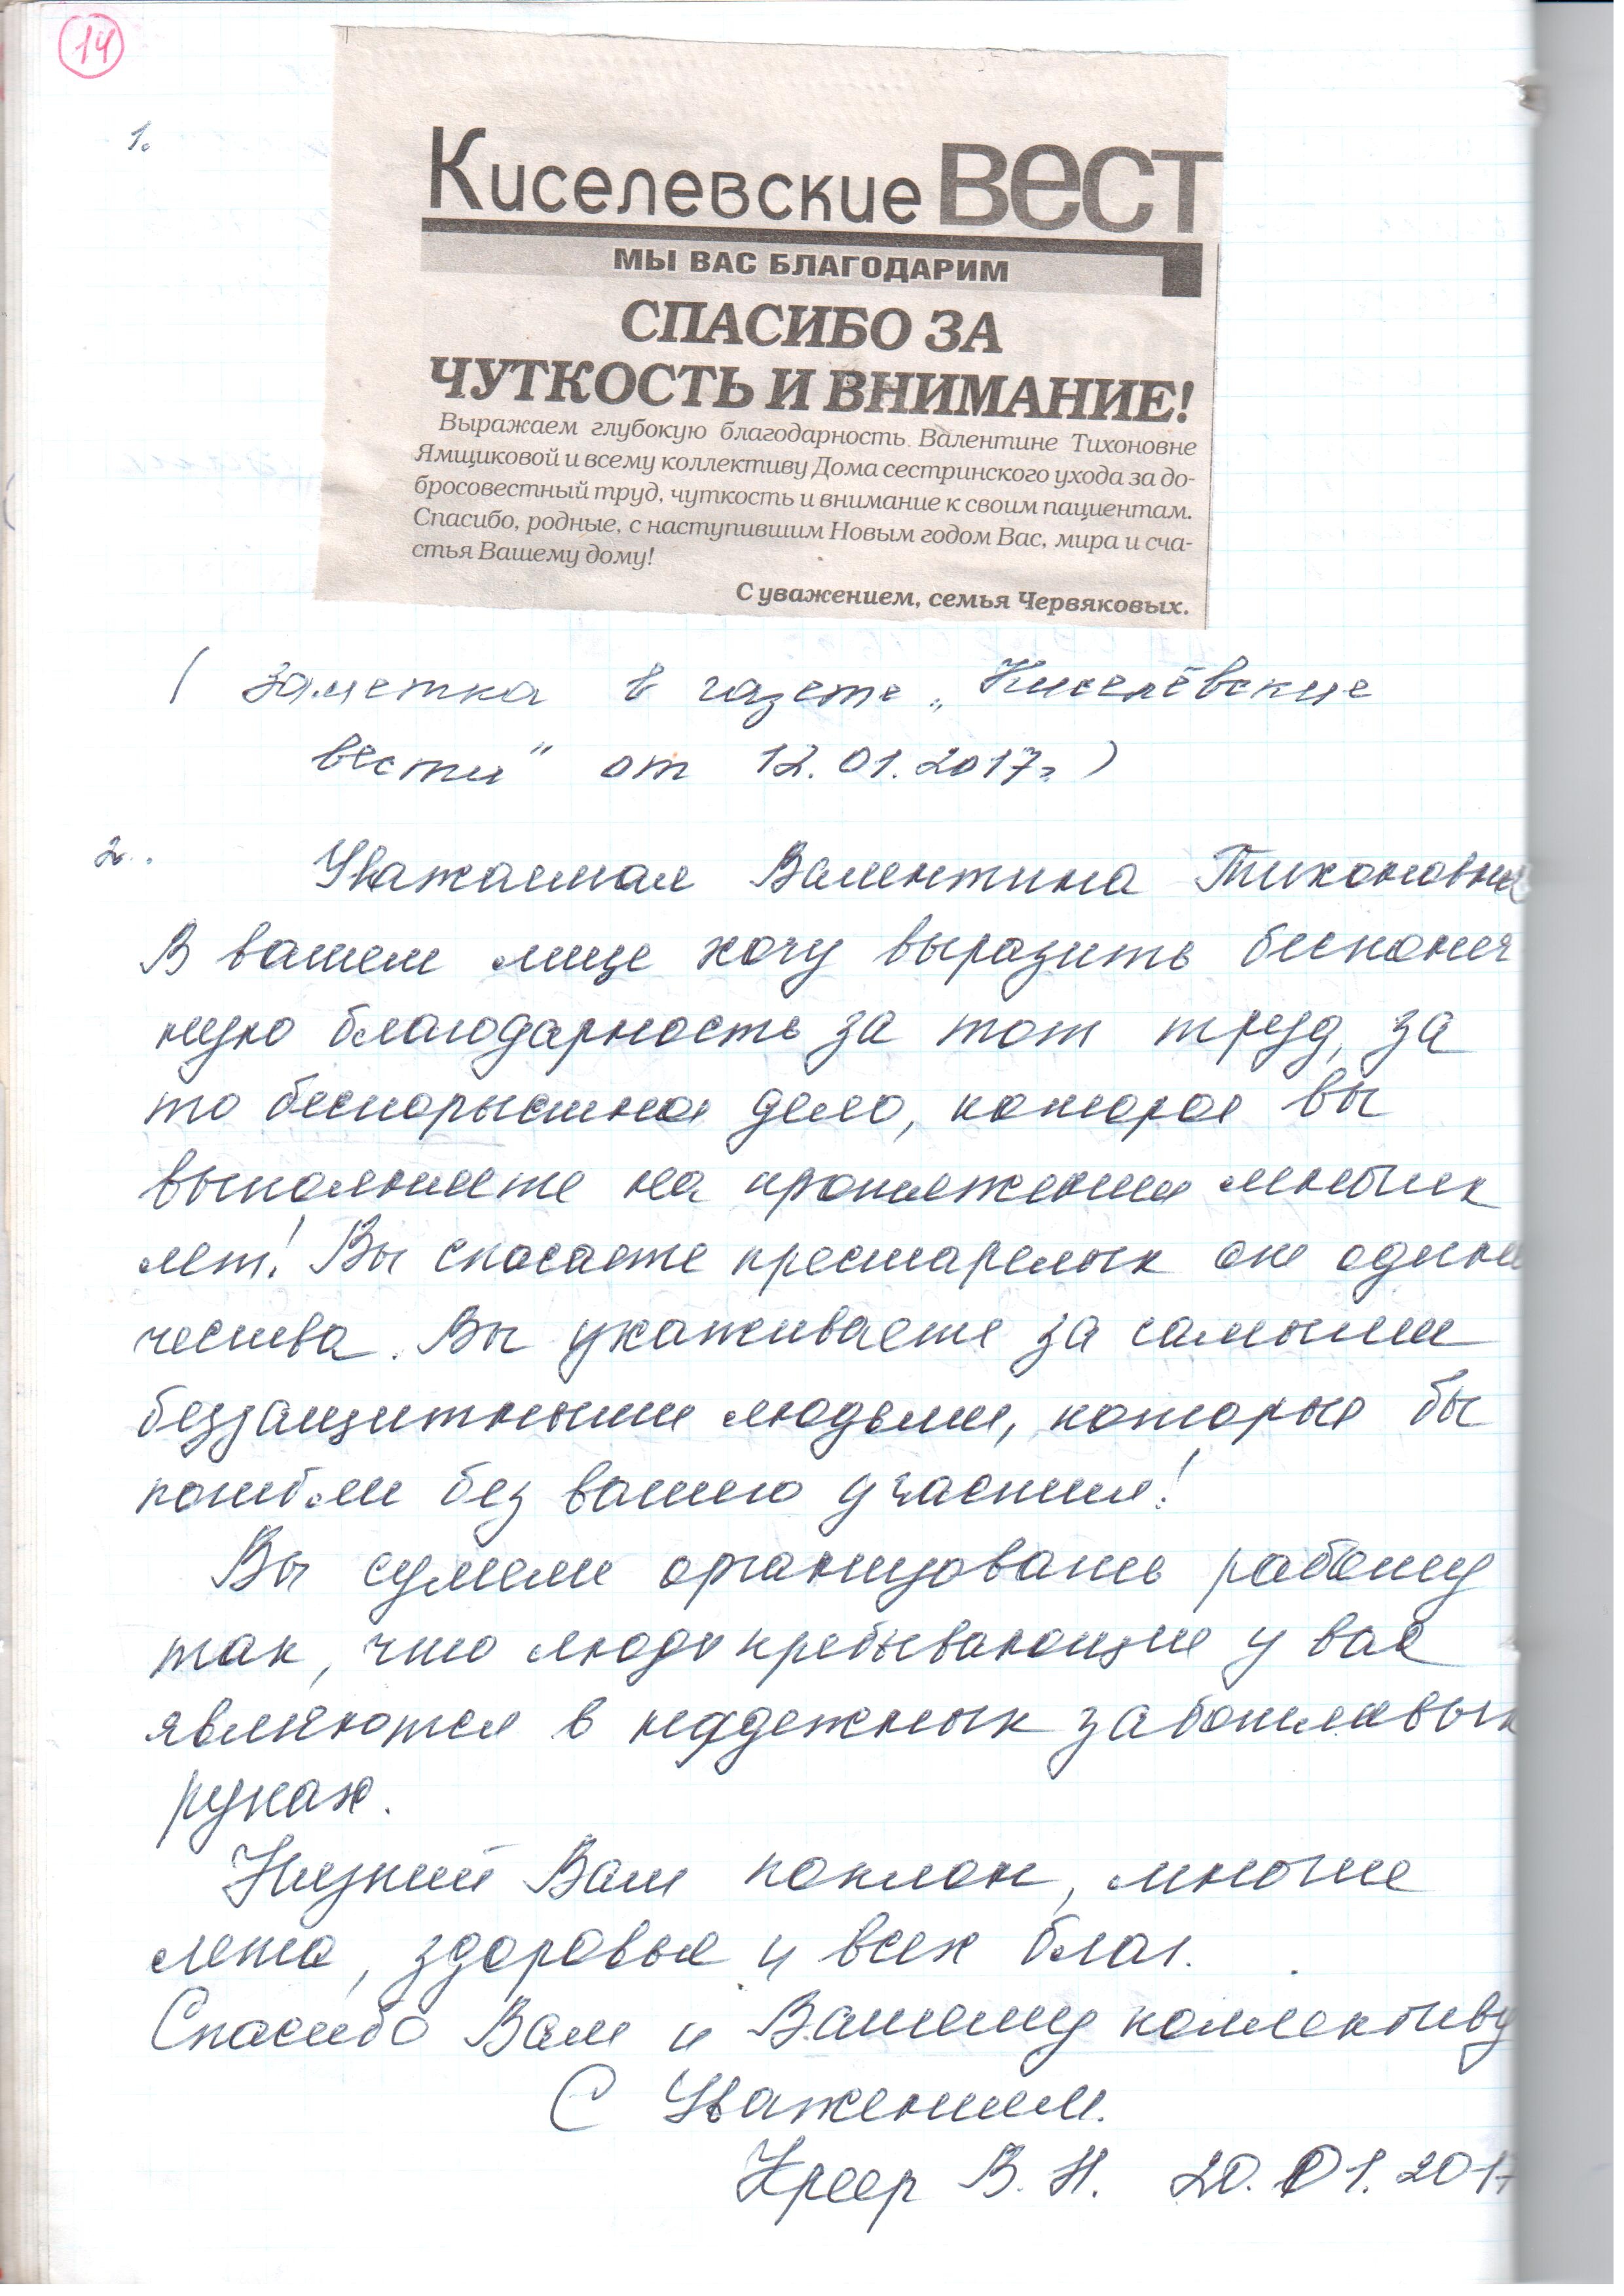 14
1.
Киселевские ВЕСТ
МЫ ВАС БЛАГОДАРИМ
СПАСИБО ЗА
ЧУТКОСТЬ И ВНИМАНИЕ!
Выражаем глубокую благодарность Валентине Тихоновне
Ямщиковой и всему коллективу Дома сестринского ухода за до-
бросовестный труд, чуткость и внимание к своим пациентам.
Спасибо, родные, с наступившим Новым годом Вас, мира и сча-
стья Вашему дому!
С уважением, семья Червяковых.
( заметка в газете „Киселёвские
вести" от 12.01.2017г)
2.
Уважаемая Валентина Тихоновна
В вашем лице хочу выразить бесконеч
ную благодарность за тот труд, за
то бескорыстное дело, которое вы
выполняете на протяжении многих
лет! Вы спасаете престарелых от одино
чества. Вы ухаживаете за самыми
беззащитными людьми, которые бы
погибли без вашего участия!
Вы сумели организовать работу
так, что люди пребывающие у вас
являются в надежных заботливых
руках.
Низкий Вам поклон, многие
лета, здоровья и всех благ.
Спасибо Вам и Вашему коллективу
С Уважением.
Креер В. Н. 20.01.2017